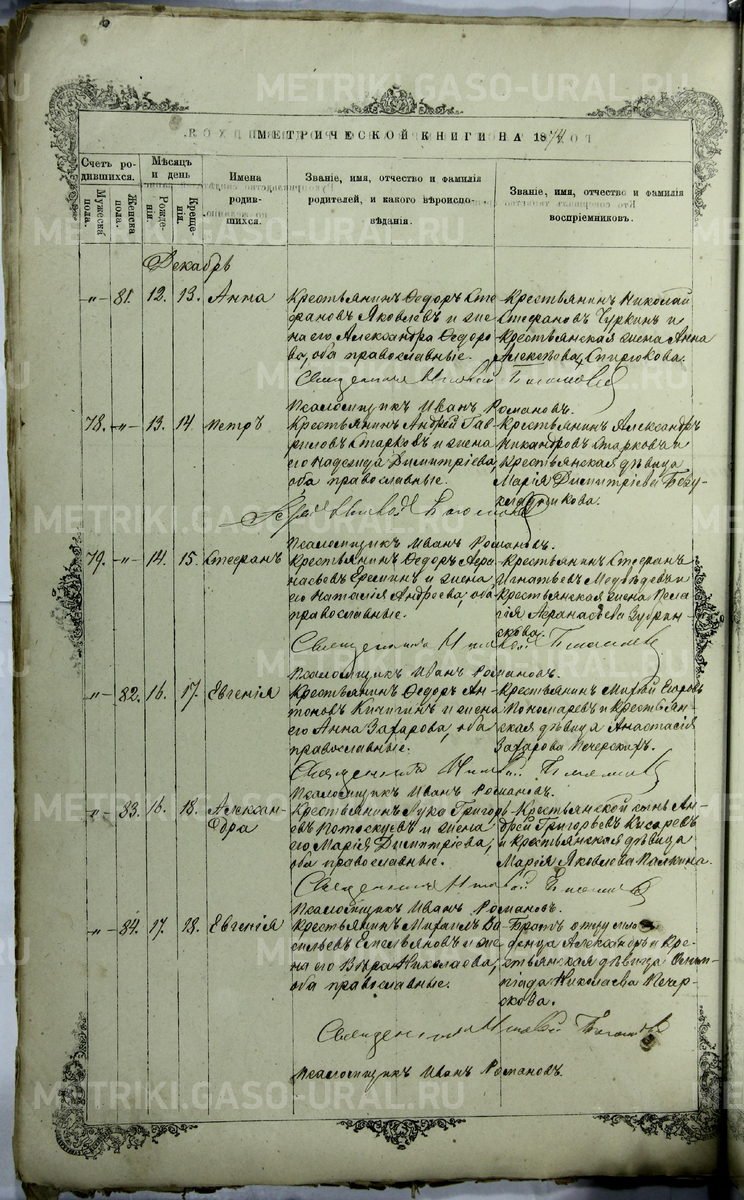 МЕТРИЧЕСКОЙ КНИГИ НА 1874
Счетъ родившихся.
Мужеска пола.
Женска пола.
Мѣсяцъ и день
Рожденія.
Крещенія.
Имена родившихся.
Званіе, имя, отчество и фамилія родителей, и какого вѣроисповѣданія.
Званіе, имя, отчество и фамилія воспріемниковъ.
Декабрь
-"- 81. 12. 13. Анна
Крестьянинъ Ѳедоръ Сте
фановъ Яковлевъ и же
на его Александра Ѳедоро
ва, оба православные.
Крестьянинъ Николай
Стефановъ Чуркинъ и
крестьянская жена Анна
Алексѣева Спирюкова.
Священникъ
Псаломщикъ Иванъ Романовъ.
78. -"- 13. 14. Петръ
Крестьянинъ Андрей Гав
риловъ Старковъ и жена
его Надежда Димитріева,
оба православные.
Крестьянинъ Александръ
Никандровъ Старковъ и
крестьянская дѣвица
Марія Димитріева
Псаломщикъ Иванъ Романовъ.
79. -"- 14. 15. Стефанъ
Крестьянинъ Ѳедоръ Аѳа
насьевъ Ереминъ и жена
его Наталія Андреева, оба
православные.
Крестьянинъ Стефанъ
Игнатьевъ Медвѣдевъ и
крестьянская жена Пела
гія Аѳанасьева
Священникъ
Псаломщикъ Иванъ Романовъ.
-"- 82. 16. 17. Евгенія
Крестьянинъ Ѳедоръ Ан
тоновъ Кичигинъ и жена
его Анна Захарова, оба
православные.
Крестьянинъ Егоровъ
Пономаревъ и крестьян
ская дѣвица Анастасія
Захарова
Священникъ
Псаломщикъ Иванъ Романовъ.
-"- 83. 16. 18. Алексан
дра
Крестьянинъ Лука Григорь
евъ Потоскуевъ и жена
его Марія Димитріева,
оба православные.
Крестьянской сынъ Ан
дрей Григорьевъ Кисаревъ
и крестьянская дѣвица
Марія Яковлева Палкина.
Священникъ
Псаломщикъ Иванъ Романовъ.
-"- 84. 17. 18. Евгенія
Крестьянинъ Михаилъ Ва
сильевъ Емельяновъ и же
на его Вѣра Николаева,
оба православные.
Братъ отцу мла
денца Александръ и кре
стьянская дѣвица Олим
піада Николаева Печер
скова.
Священникъ
Псаломщикъ Иванъ Романовъ.
METRIKI.GASO-URAL.RU